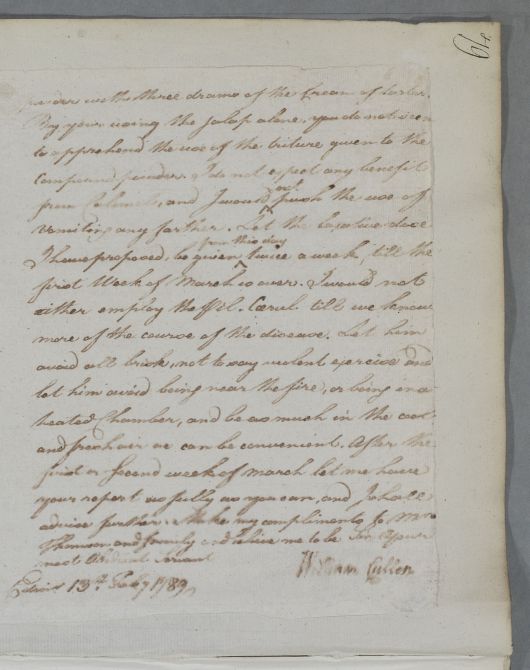 614
powder with three drams of the Cream of tartar.
By your using the Jalap alone, you do not seem
to apprehend the use of the triture given to the
Compound powder. I do not expect any benefit
from Calomel, and I would not push the use of
vomiting any farther. Let the laxative dose
I have proposed, be given from this day twice a week, till the
first Week of March is over. I would not
either employ the Pil. Coerul. till we know
more of the course of the disease. Let him
avoid all brisk, not to say violent exercise and
let him avoid being near the fire, or being in a
heated Chamber, and be as much in the cool
and fresh air as can be convenient. After the
first or Second week of March let me have
your report as fully as you can, and I shall
advise further. Make my compliments to Mrs
Thomson and family and believe me to be Sir Your
most Obedient Servant
William Cullen
Edinr 13th Feby 1789